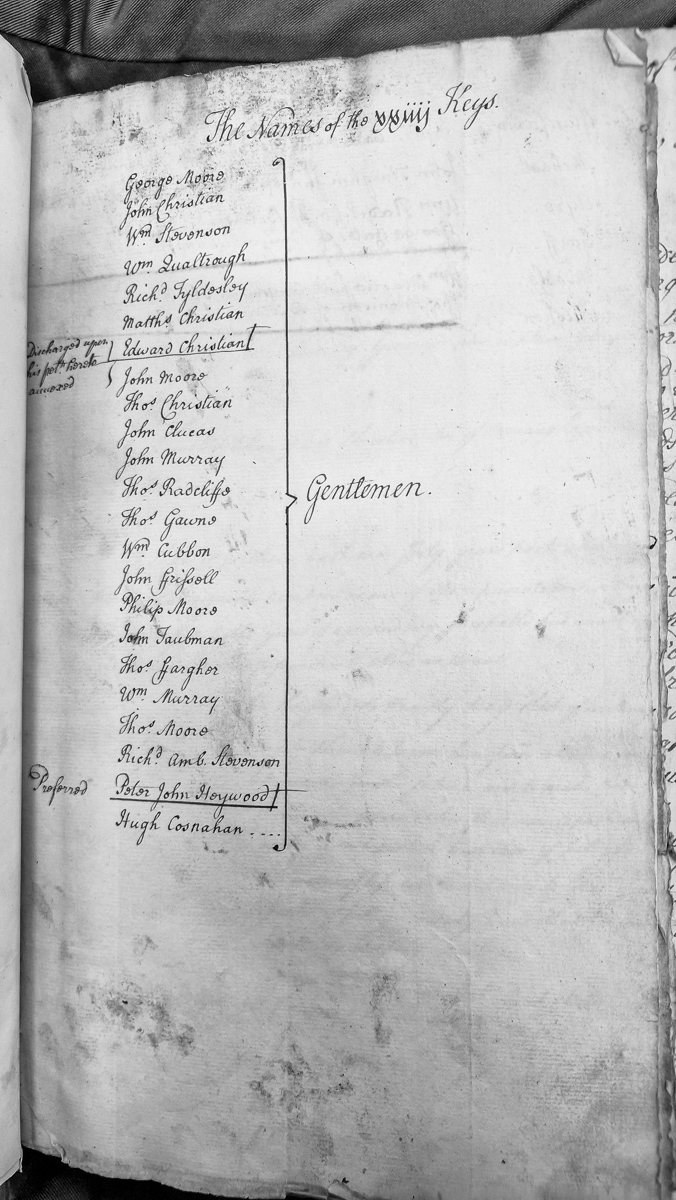 The Names of the xxiiij Keys.
George Moore
John Christian
Wm. Stevenson
Wm. Qualtrough
Richd. Tyldesley
Matths. Christian
Discharged upon
his petn. hereto
annexed
Edward Christian
John Moore
Thos. Christian
John Clucas
John Murray
Thos. Radcliffe
Thos. Gawne
Wm. Cubbon
John Frissell
Philip Moore
John Taubman
Thos. ffargher
Wm. Murray
Thos. Moore
Richd. Amb. Stevenson
Preferred Peter John Heywood
Hugh Cosnahan ....
Gentlemen.